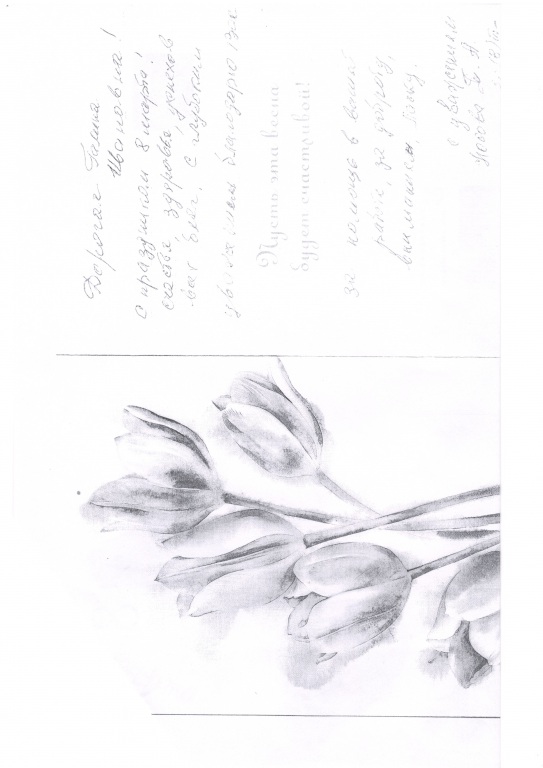 Дорогая Галина
Ивановна!
С праздником 8 марта!
счастья, здоровья, успехов
всех благ. С глубоким
уважением благодарю Вас
Пусть эта весна
будет счастливой!
за помощь в нашей
работе, за доброту,
внимание, ласку.
С уважением
Попова